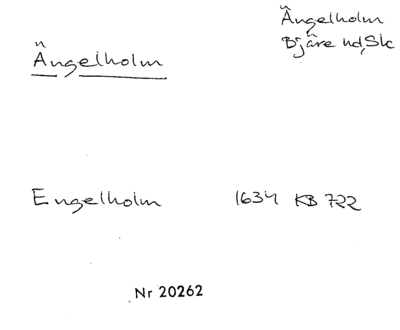 Ängelholm
Bjäre hd, Sk
Ängelholm
Engelholm 1634 KB 722
Nr 20262